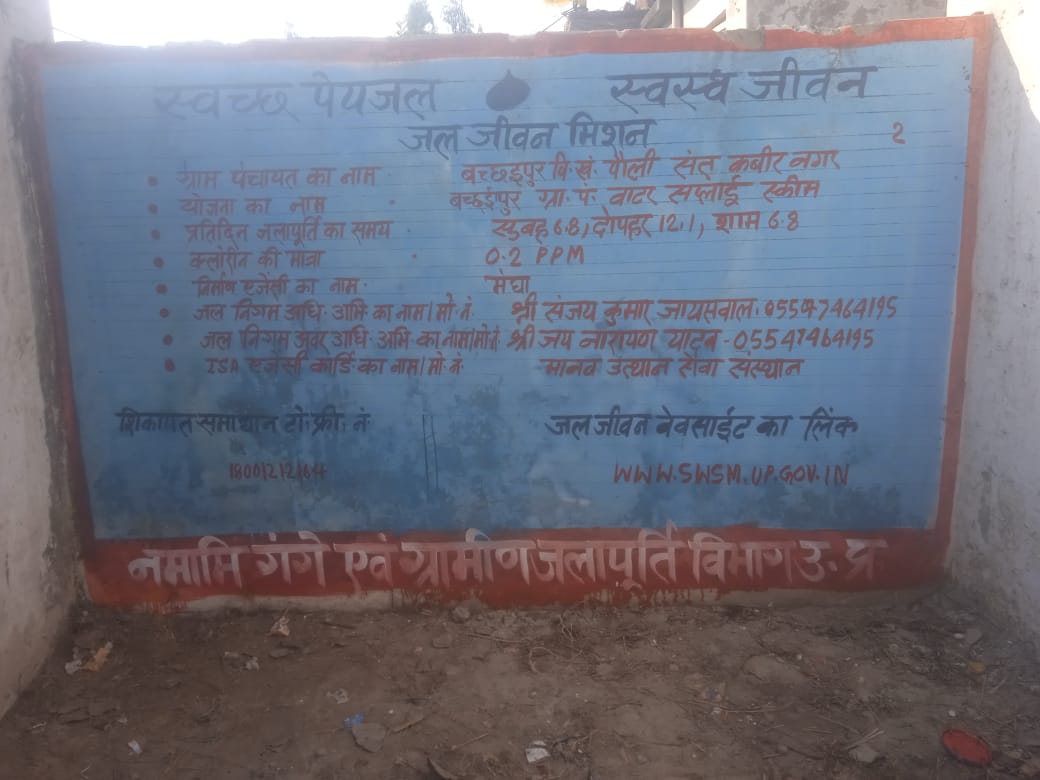 स्वच्छ पेयजल स्वस्थ जीवन
जल जीवन मिशन 2
• ग्राम पंचायत का नाम · बच्छईपुर वि·खं· पौली संत कबीर नगर
• योजना का नाम · बच्छईपुर ग्रा· पं· वाटर सप्लाई स्कीम
• प्रतिदिन जलापूर्ति का समय सुबह 6.8, दोपहर 12.1, शाम 6.8
• क्लोरीन की मात्रा · 0.2 PPM
• निर्माण एजेंसी का नाम · मेघा
• जल निगम अधि· अभि· का नाम/मो· नं· श्री संजय कुमार जायसवाल·
• जल निगम अवर अधि· अभि· का नाम/मो·नं श्री जय नारायण यादव - 05547464195
• ISA एजेंसी कोर्डि· का नाम/मो· नं· मानव उत्थान सेवा संस्थान
शिकायत समाधान टो· फ्री· नं·
जल जीवन वेवसाईट का लिंक
18001212164
WWW.SWSM.UP.GOV.IN
नमामि गंगे एवं ग्रामीण जलापूर्ति विभाग उ· प्र·